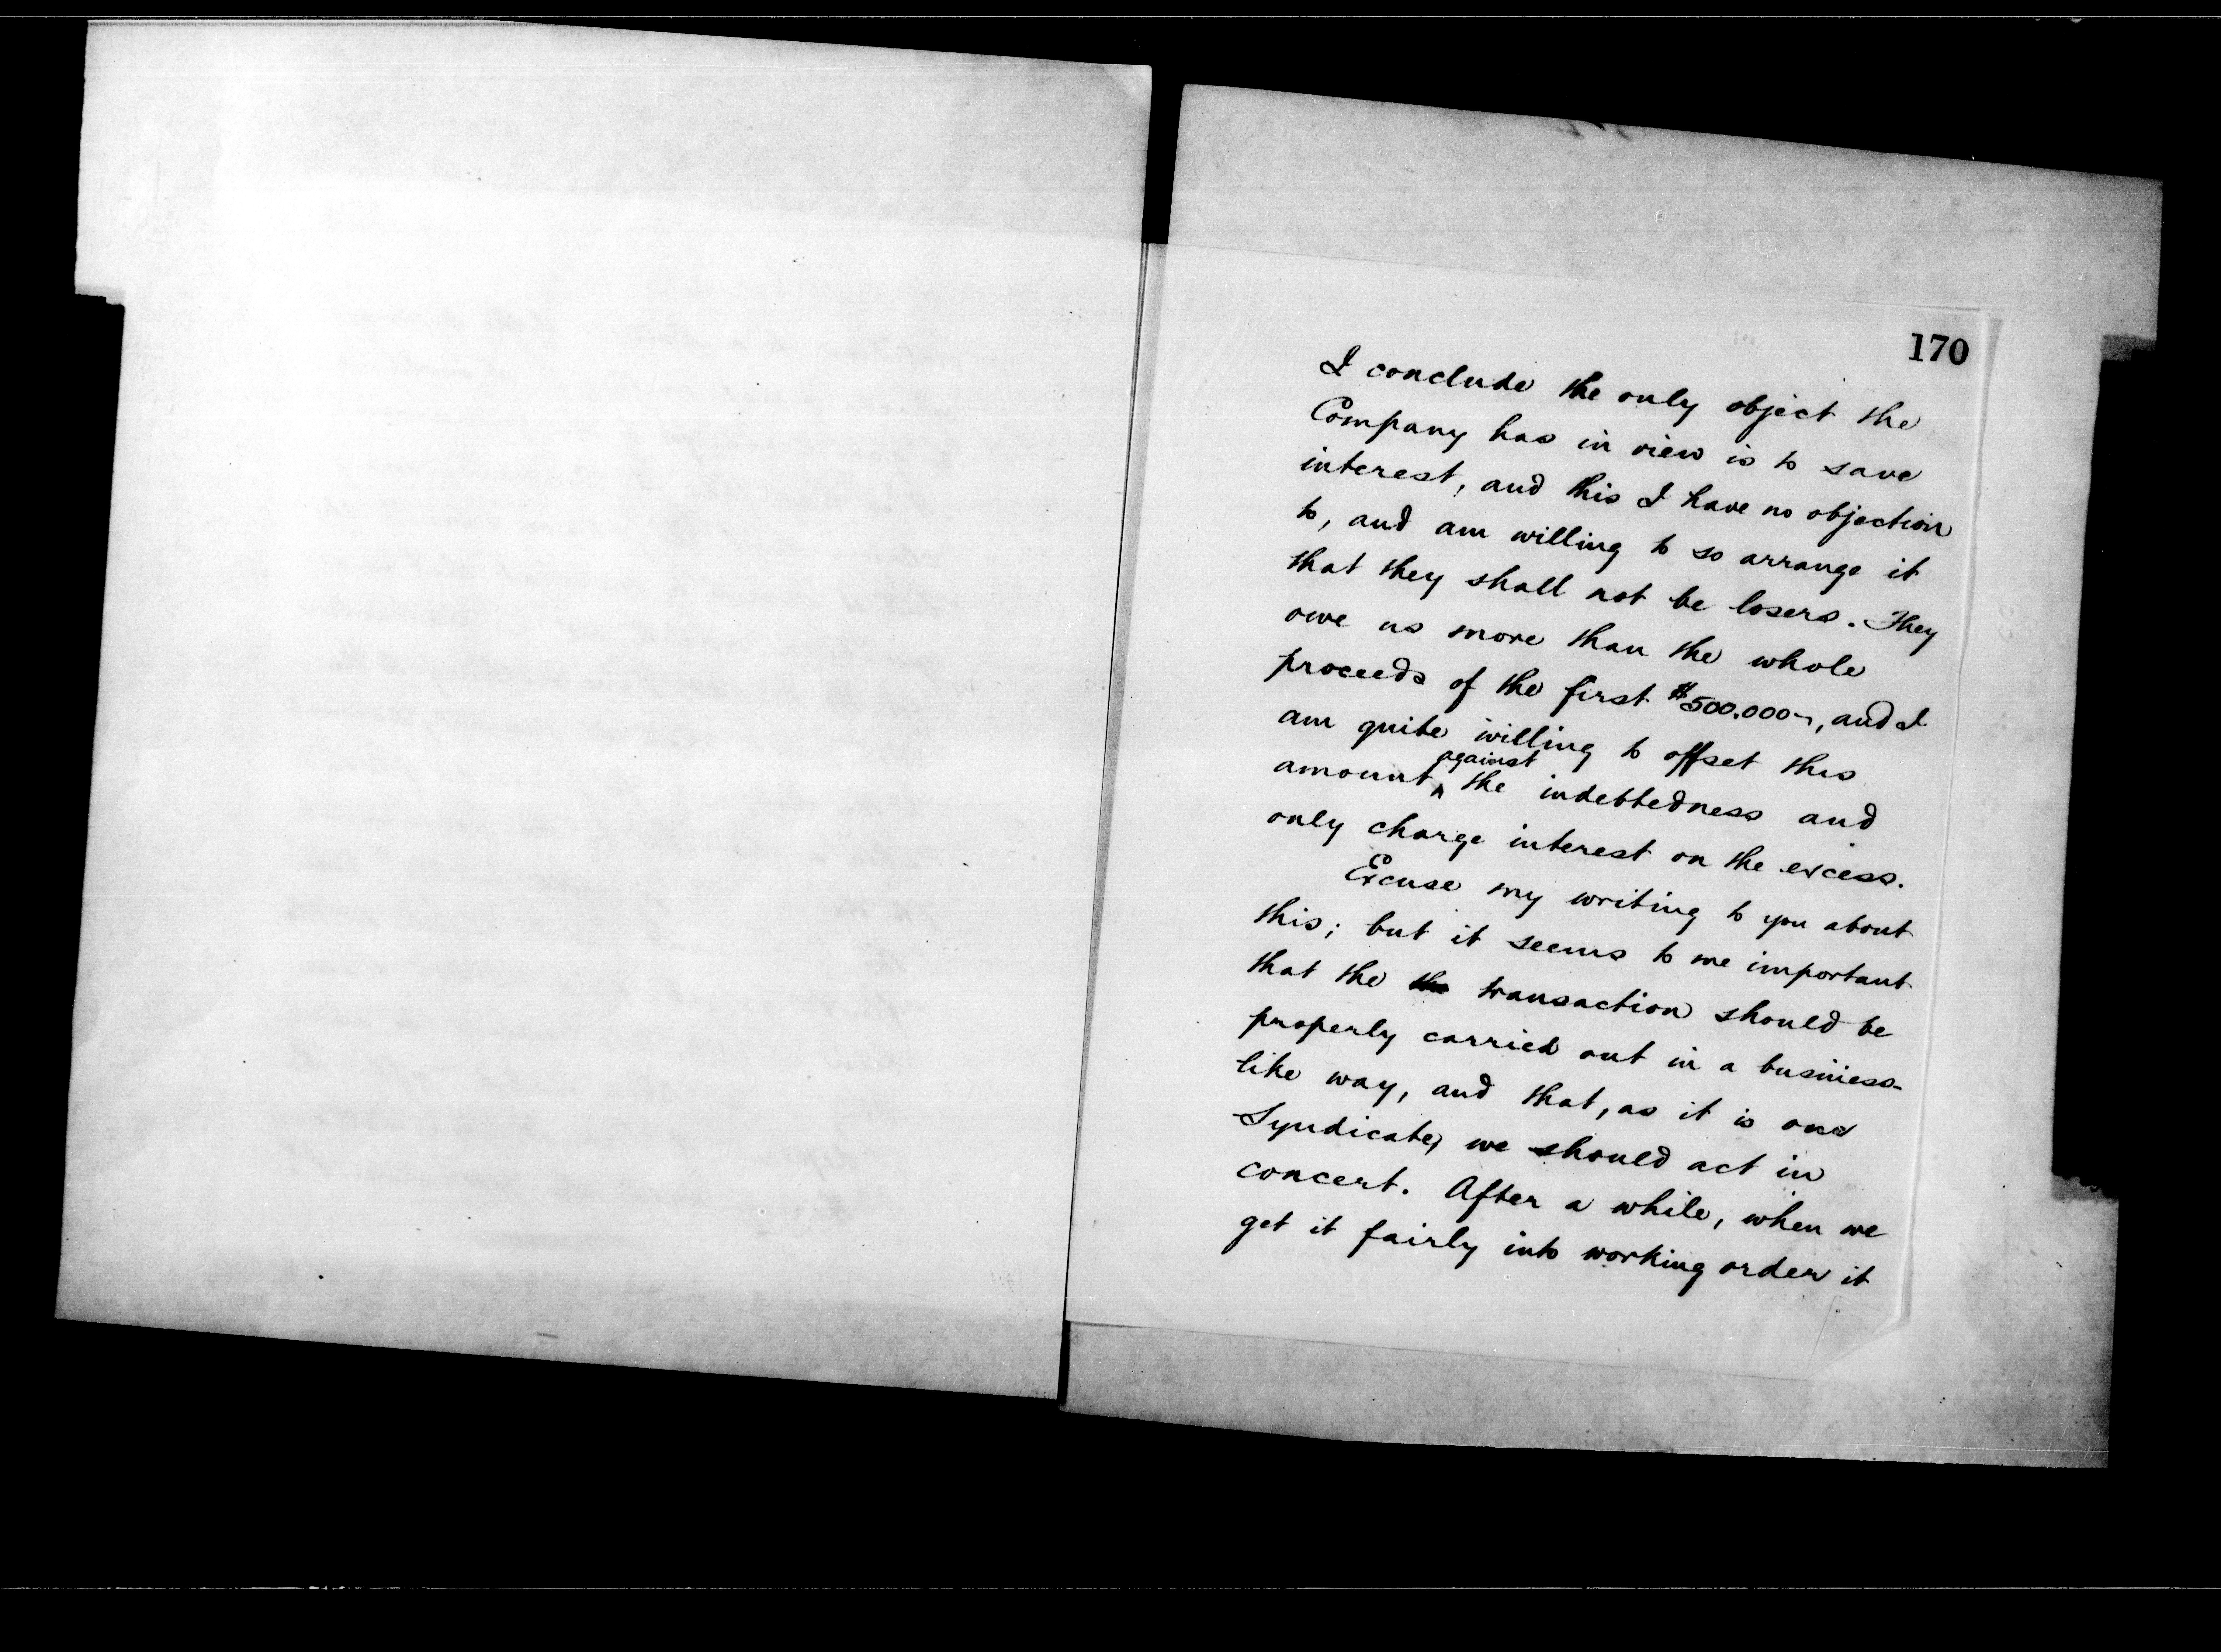 170
I conclude the only object the
Company has in view is to save
interest, and this I have no objection
to, and am willing to so arrange it
that they shall not be losers. They
owe us more than the whole
proceeds of the first $500.000–, and I
am quite willing to offset this
against
amount ^ the indebtedness and
only charge interest on the excess.
Excuse my writing to you about
this; but it seems to me important
that the the transaction should be
properly carried out in a business-
like way, and that, as it is one
Syndicate, we should act in
concert. After a while, when we
get it fairly into working order it